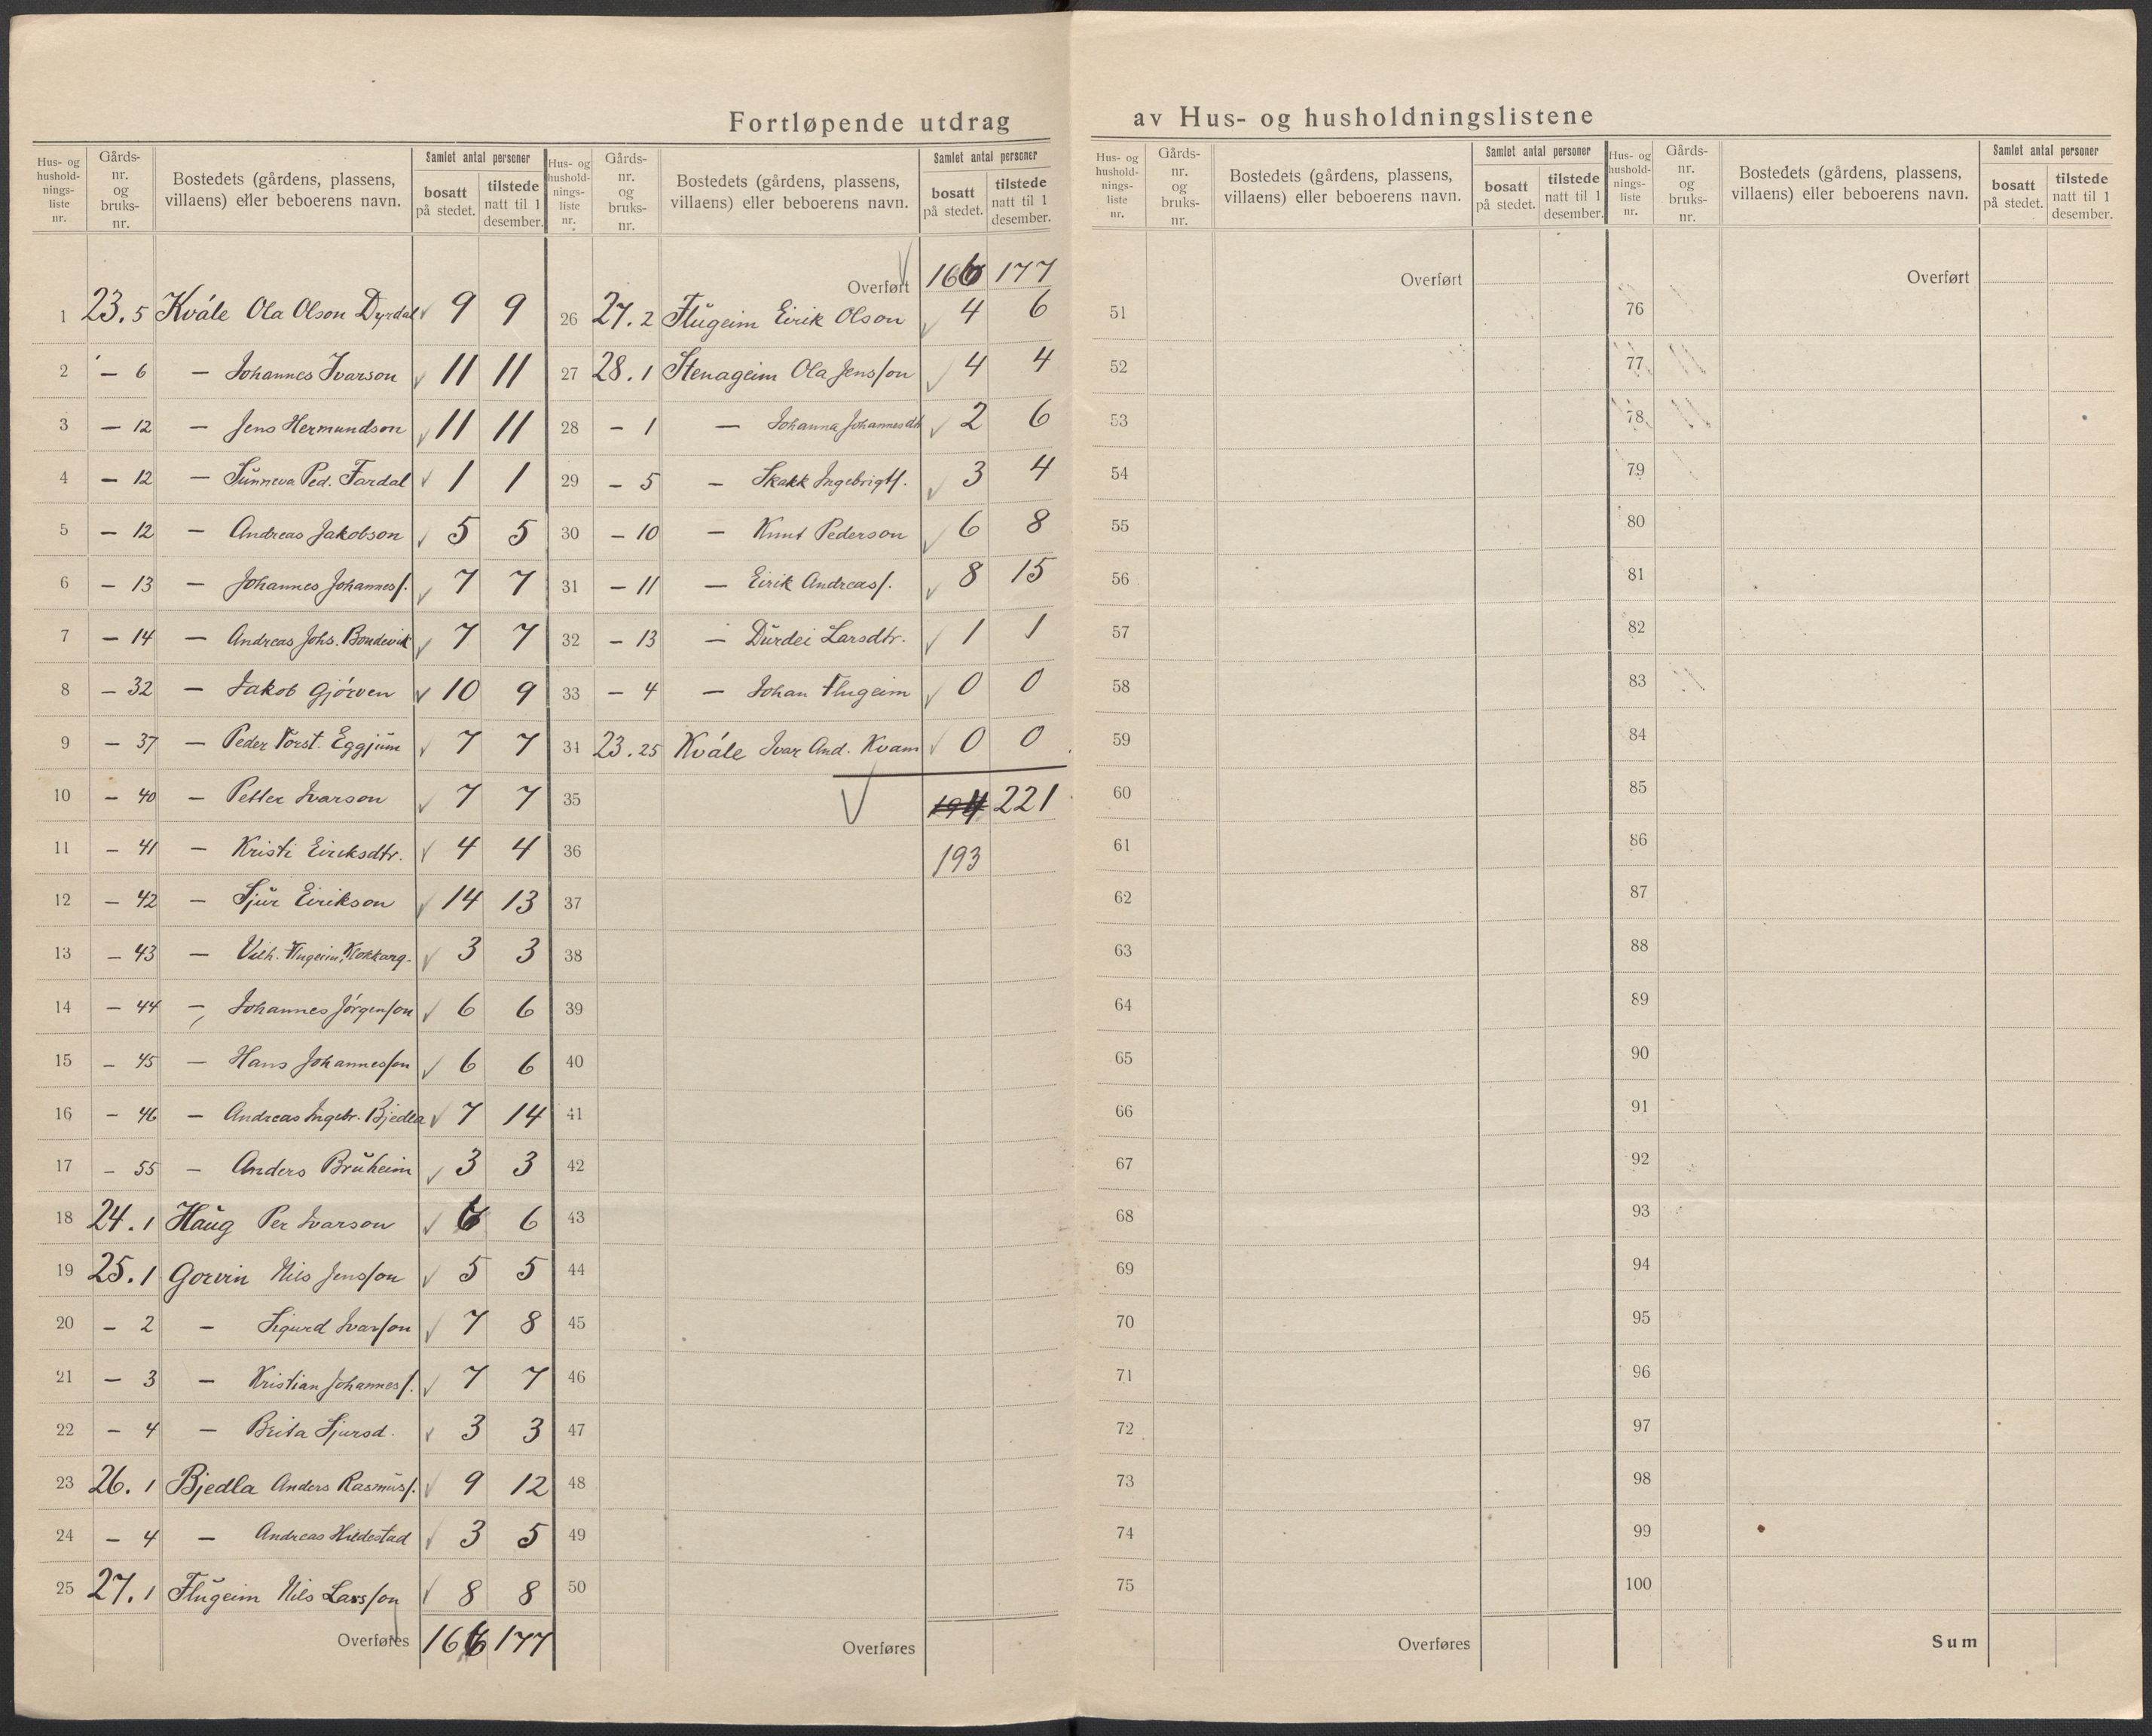 Fortløpende utdrag av Hus- og husholdningslistene
Hus- og hushold-nings-liste nr. | Gårds-nr. og bruks-nr. | Bostedets (gårdens, plassens, villaens) eller beboerens navn. | Samlet antal personer | bosatt på stedet. | tilstede natt til 1 desember.
1 23.5 Kvåle Ola Olson Dyrdal 9 9
2 — 6 — Johannes Ivarson 11 11
3 — 12 — Jens Hermundson 11 11
4 — 12 — Sunneva Ped. Fardal 1 1
5 — 12 — Andreas Jakobson 5 5
6 — 13 — Johannes Johanness. 7 7
7 — 14 — Andreas Johs. Bondevik 7 7
8 — 32 — Jakob Gjørven 10 9
9 — 37 — Peder Torst. Eggjum 7 7
10 — 40 — Petter Ivarson 7 7
11 — 41 — Kristi Eiriksdtr. 4 4
12 — 42 — Sjur Eirikson 14 13
13 — 43 — Vilh. Flugeim, Klokkarg. 3 3
14 — 44 — Johannes Jørgenson 6 6
15 — 45 — Hans Johannesson 6 6
16 — 46 — Andreas Ingebr. Bjedla 7 14
17 — 55 — Anders Bruheim 3 3
18 24.1 Haug Per Ivarson 6 6
19 25.1 Gorvin Nils Jensson 5 5
20 — 2 — Sigurd Ivarson 7 8
21 — 3 — Kristian Johanness. 7 7
22 — 4 — Brita Sjursd. 3 3
23 26.1 Bjedla Anders Rasmuss. 9 12
24 — 4 — Andreas Hildestad 3 5
25 27.1 Flugeim Nils Larsson 8 8
Overføres 166 177
Hus- og hushold-nings-liste nr. | Gårds-nr. og bruks-nr. | Bostedets (gårdens, plassens, villaens) eller beboerens navn. | Samlet antal personer | bosatt på stedet. | tilstede natt til 1 desember.
Overført 166 177
26 27.2 Flugeim Eirik Olson 4 6
27 28.1 Stenageim Ola Jensson 4 4
28 — 1 — Johanna Johannesdtr 2 6
29 — 5 — Skakk Ingebrigts. 3 4
30 — 10 — Knut Pederson 6 8
31 — 11 — Eirik Andreass. 8 15
32 — 13 — Durdei Larsdtr. 1 1
33 — 4 — Johan Flugeim 0 0
34 23.25 Kvåle Ivar And. Kvam 0 0
35 194 221
36 193
37
38
39
40
41
42
43
44
45
46
47
48
49
50
Overføres
Hus- og hushold-nings-liste nr. | Gårds-nr. og bruks-nr. | Bostedets (gårdens, plassens, villaens) eller beboerens navn. | Samlet antal personer | bosatt på stedet. | tilstede natt til 1 desember.
Overført
51
52
53
54
55
56
57
58
59
60
61
62
63
64
65
66
67
68
69
70
71
72
73
74
75
Overføres
Hus- og hushold-nings-liste nr. | Gårds-nr. og bruks-nr. | Bostedets (gårdens, plassens, villaens) eller beboerens navn. | Samlet antal personer | bosatt på stedet. | tilstede natt til 1 desember.
Overført
76
77
78
79
80
81
82
83
84
85
86
87
88
89
90
91
92
93
94
95
96
97
98
99
100
Sum